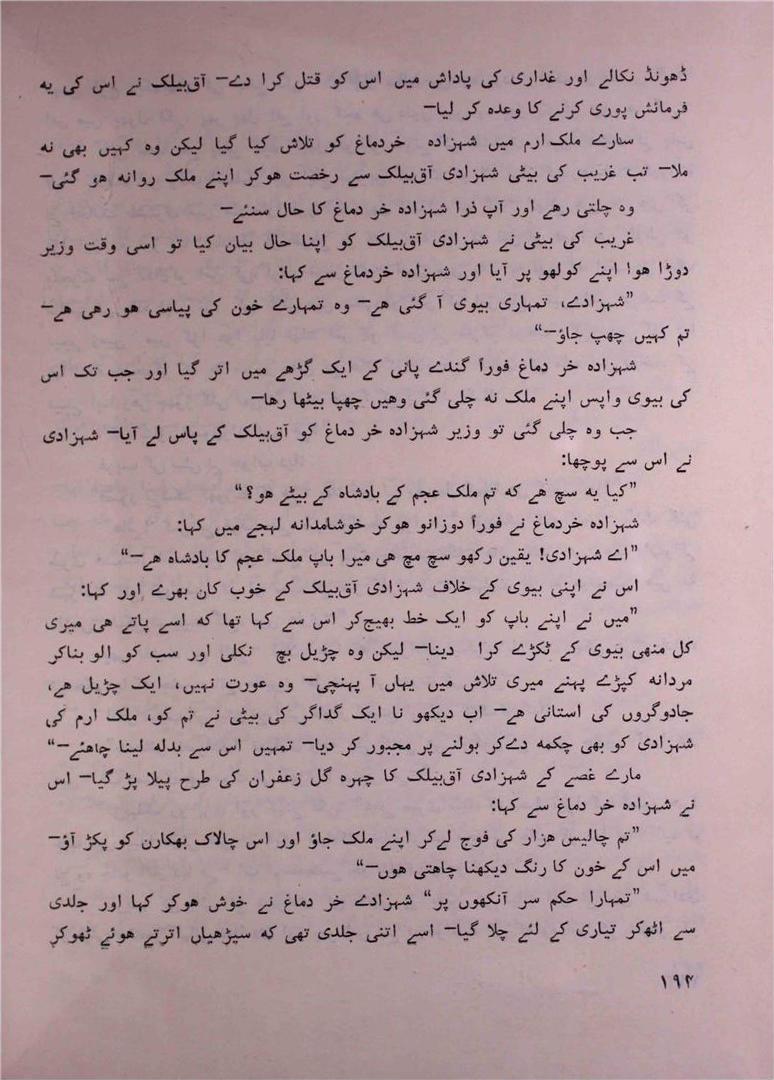 ڈھونڈ نکالے اور غداری کی پاداش میں اس کو قتل کرا دے— آق‌بیلک نے اس کی یه
فرمائش پوری کرنے کا وعدہ کر لیا—
سارے ملک ارم میں شہزادہ خردماغ کو تلاش کیا گیا لیکن وہ کہیں بھی نه
ملا— تب غریب کی بیٹی شہزادی آق‌بیلک سے رخصت ہوکر اپنے ملک روانه ہو گئی—
وہ چلتی رہے اور آپ ذرا شہزادہ خر دماغ کا حال سنئے—
غریب کی بیٹی نے شہزادی آق‌بیلک کو اپنا حال بیان کیا تو اسی وقت وزیر
دوڑا ہوا اپنے کولھو پر آیا اور شہزادہ خردماغ سے کہا:
”شہزادے، تمہاری بیوی آ گئی ہے— وہ تمہارے خون کی پیاسی ہو رہی ہے—
تم کہیں چھپ جاؤ—“
شہزادہ خر دماغ فوراً گندے پانی کے ایک گڑھے میں اتر گیا اور جب تک اس
کی بیوی واپس اپنے ملک نه چلی گئی وہیں چھپا بیٹھا رہا—
جب وہ چلی گئی تو وزیر شہزادہ خر دماغ کو آق‌بیلک کے پاس لے آیا— شہزادی
نے اس سے پوچھا:
”کیا یه سچ ہے که تم ملک عجم کے بادشاہ کے بیٹے ہو؟“
شہزادہ خردماغ نے فوراً دوزانو ہوکر خوشامدانه لہجے میں کہا:
”اے شہزادی! یقین رکھو سچ مچ ہی میرا باپ ملک عجم کا بادشاہ ہے—“
اس نے اپنی بیوی کے خلاف شہزادی آق‌بیلک کے خوب کان بھرے اور کہا:
”میں نے اپنے باپ کو ایک خط بھیج‌کر اس سے کہا تھا که اسے پاتے ہی میری
کل منھی بیوی کے ٹکڑے کرا دینا— لیکن وہ چڑیل بچ نکلی اور سب کو الو بناکر
مردانه کپڑے پہنے میری تلاش میں یہاں آ پہنچی— وہ عورت نہیں، ایک چڑیل ہے،
جادوگروں کی استانی ہے— اب دیکھو نا ایک گداگر کی بیٹی نے تم کو، ملک ارم کی
شہزادی کو بھی چکمه دے‌کر بولنے پر مجبور کر دیا— تمہیں اس سے بدله لینا چاہئے—“
مارے غصے کے شہزادی آق‌بیلک کا چہرہ گل زعفران کی طرح پیلا پڑ گیا— اس
نے شہزادہ خر دماغ سے کہا:
”تم چالیس ہزار کی فوج لے‌کر اپنے ملک جاؤ اور اس چالاک بھکارن کو پکڑ آؤ—
میں اس کے خون کا رنگ دیکھنا چاہتی ہوں—“
”تمہارا حکم سر آنکھوں پر“ شہزادے خر دماغ نے خوش ہوکر کہا اور جلدی
سے اٹھ‌کر تیاری کے لئے چلا گیا— اسے اتنی جلدی تھی که سیڑھیاں اترتے ہوئے ٹھوکر
۱۹۴